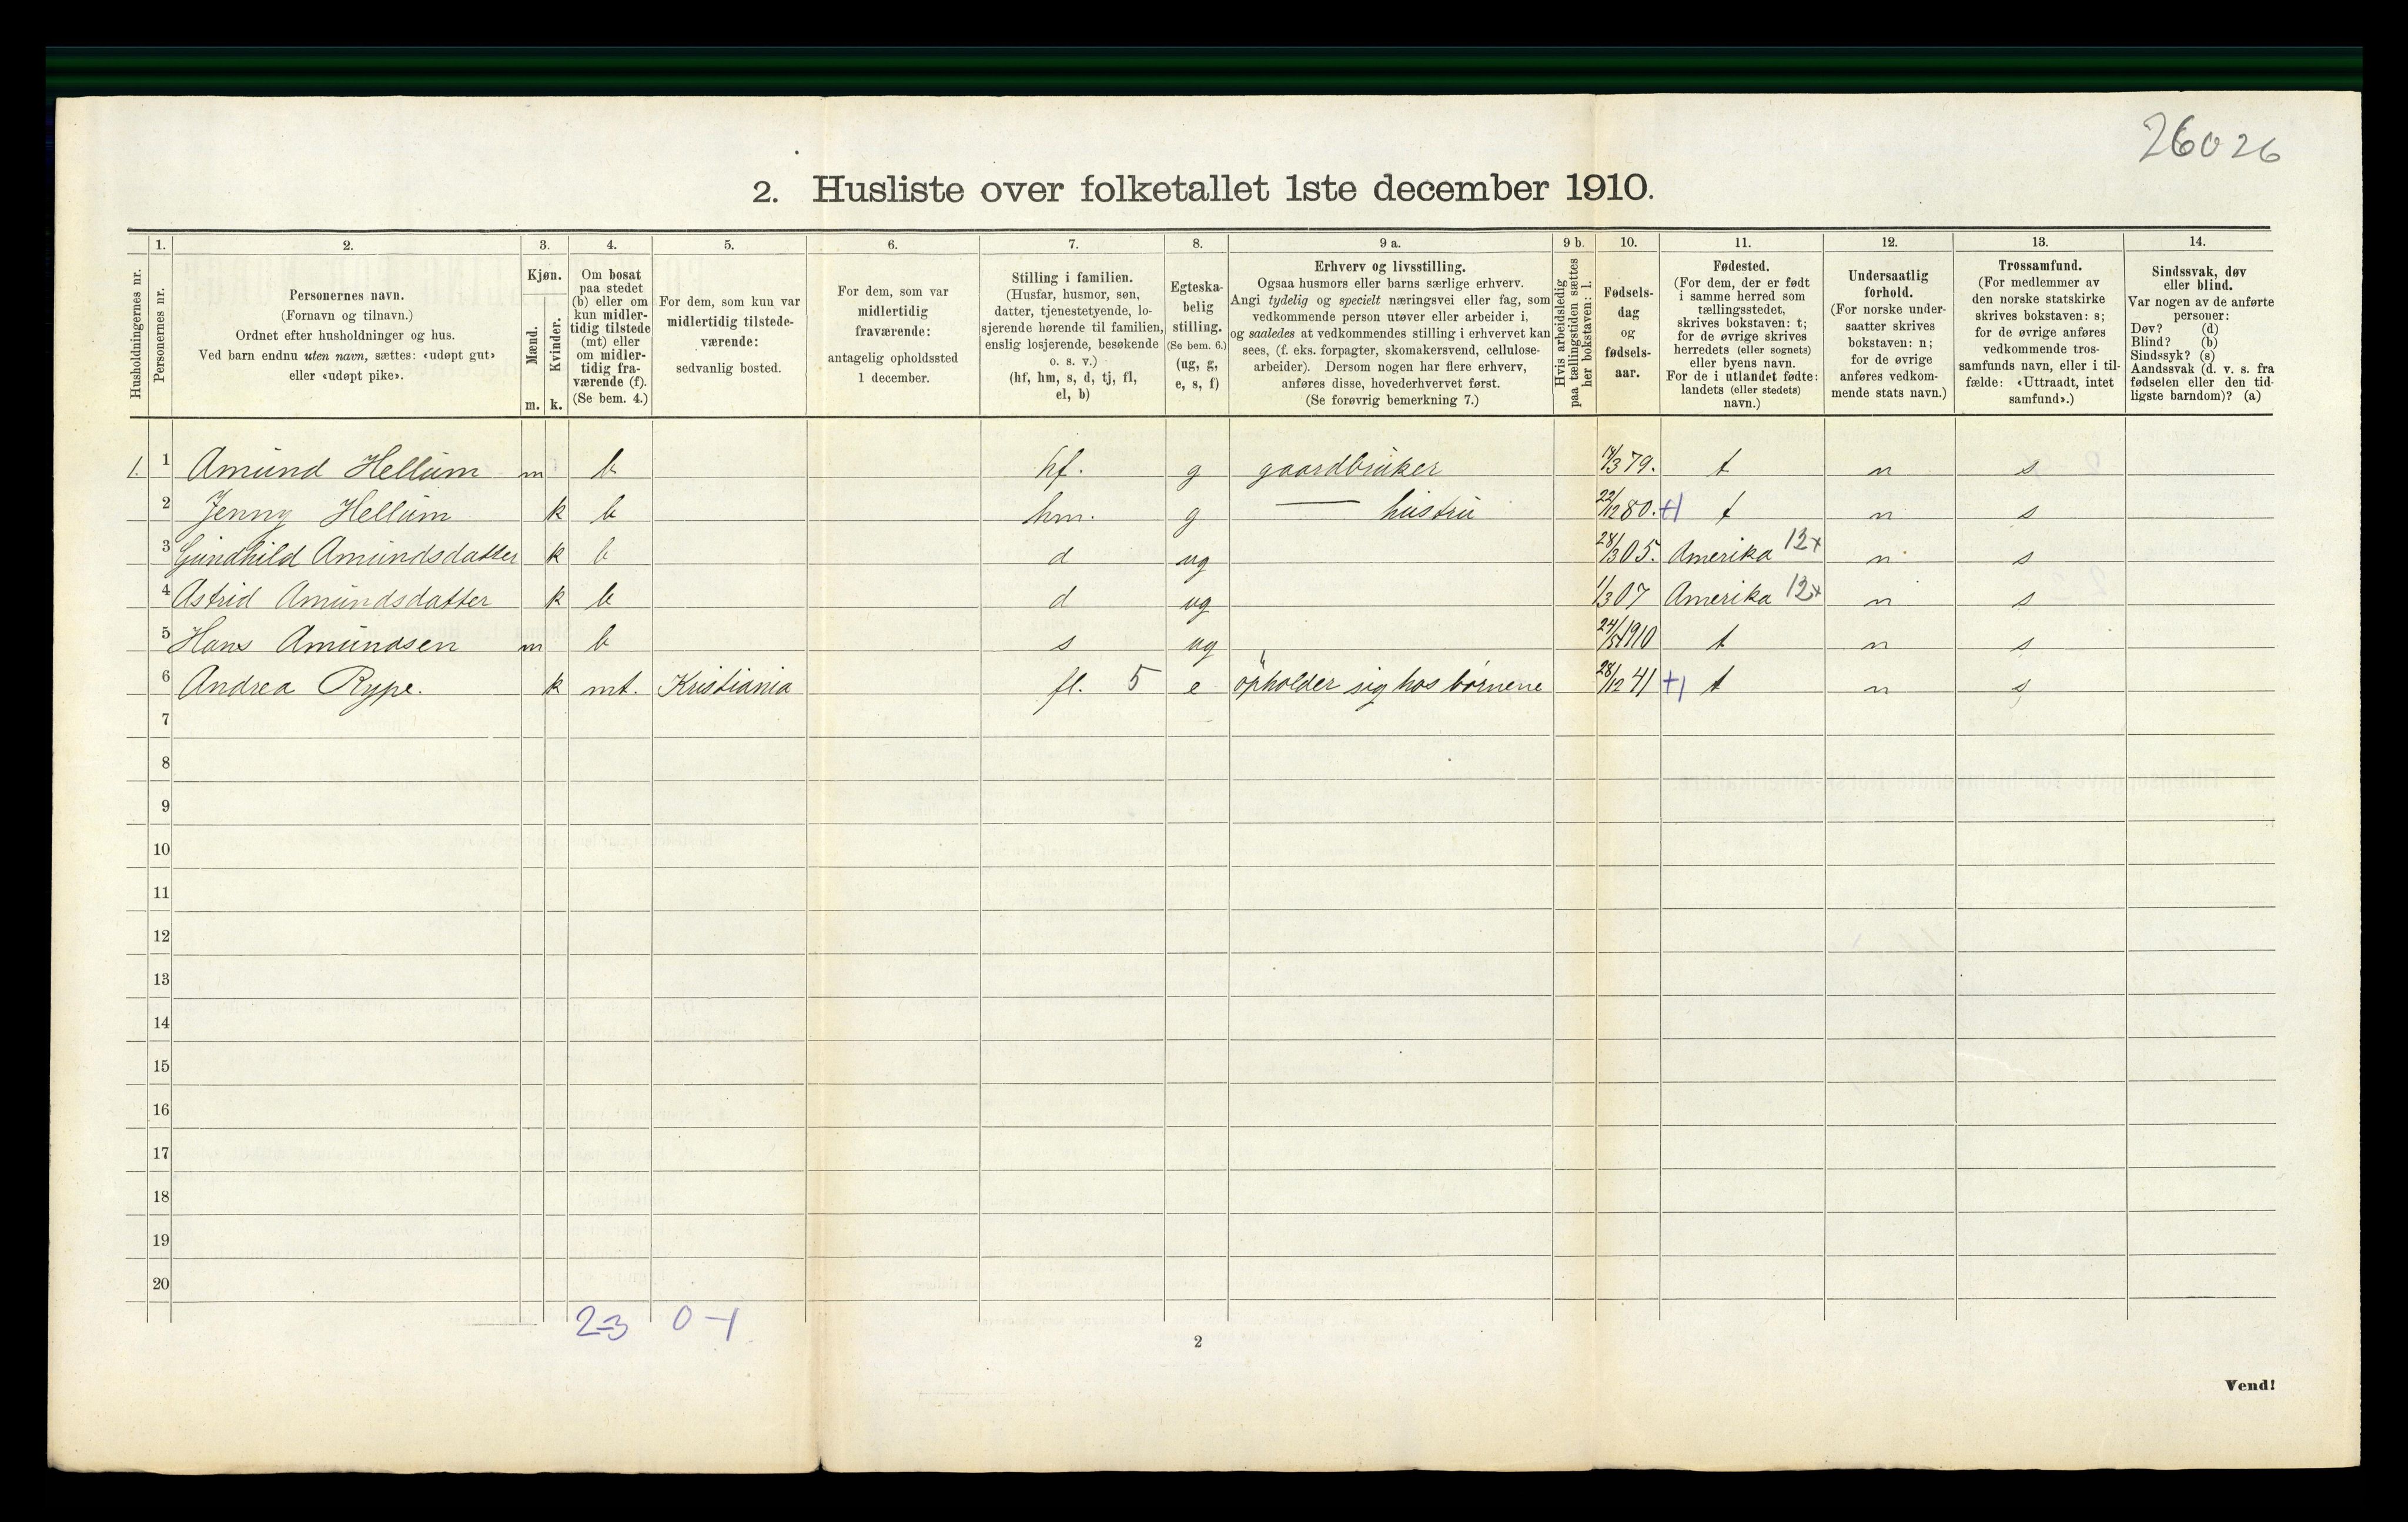 26026
2. Husliste over folketallet 1ste december 1910.
Husholdningernes nr.
1.
Personernes nr.
2.
Personernes navn.
(Fornavn og tilnavn.)
Ordnet efter husholdninger og hus.
Ved barn endnu uten navn, sættes: «udøpt gut»
eller «udøpt pike».
3.
Kjøn.
Mænd.
m.
Kvinder.
k.
4.
Om bosat
paa stedet
(b) eller om
kun midler-
tidig tilstede
(mt) eller
om midler-
tidig fra-
værende (f).
(Se bem. 4.)
5.
For dem, som kun var
midlertidig tilstede-
værende:
sedvanlig bosted.
6.
For dem, som var
midlertidig
fraværende:
antagelig opholdssted
1 december.
7.
Stilling i familien.
(Husfar, husmor, søn,
datter, tjenestetyende, lo-
sjerende hørende til familien,
enslig losjerende, besøkende
o. s. v.)
(hf, hm, s, d, tj, fl,
el, b)
8.
Egteska-
belig
stilling.
(Se bem. 6.)
(ug, g,
e, s, f)
9 a.
Erhverv og livsstilling.
Ogsaa husmors eller barns særlige erhverv.
Angi tydelig og specielt næringsvei eller fag, som
vedkommende person utøver eller arbeider i,
og saaledes at vedkommendes stilling i erhvervet kan
sees, (f. eks. forpagter, skomakersvend, cellulose-
arbeider). Dersom nogen har flere erhverv,
anføres disse, hovederhvervet først.
(Se forøvrig bemerkning 7.)
9 b.
Hvis arbeidsledig
paa tællingstiden sættes
her bokstaven: l.
10.
Fødsels-
dag
og
fødsels-
aar.
11.
Fødested.
(For dem, der er født
i samme herred som
tællingsstedet,
skrives bokstaven: t;
for de øvrige skrives
herredets (eller sognets)
eller byens navn.
For de i utlandet fødte:
landets (eller stedets)
navn.)
12.
Undersaatlig
forhold.
(For norske under-
saatter skrives
bokstaven: n;
for de øvrige
anføres vedkom-
mende stats navn.)
13.
Trossamfund.
(For medlemmer av
den norske statskirke
skrives bokstaven: s;
for de øvrige anføres
vedkommende tros-
samfunds navn, eller i til-
fælde: «Uttraadt, intet
samfund».)
14.
Sindssvak, døv
eller blind.
Var nogen av de anførte
personer:
Døv? (d)
Blind? (b)
Sindssyk? (s)
Aandssvak (d. v. s. fra
fødselen eller den tid-
ligste barndom)? (a)
1. 1 Amund Hellum m b hf. g gaardbruker 14/3 79. t n s
2 Jenny Hellum k b hm. g — hustru 22/12 80. +1 t n s
3 Gundhild Amundsdatter k b d ug 28/3 05. Amerika 12x n s
4 Astrid Amundsdatter k b d ug 1/3 07 Amerika 12x n s
5 Hans Amundsen m b s ug 24/5 1910 t n s
6 Andrea Rype. k mt. Kristiania fl. 5 e opholder sig hos børnene 28/12 41 +1 t n s
7
8
9
10
11
12
13
14
15
16
17
18
19
20
2-3 0-1
2
Vend!